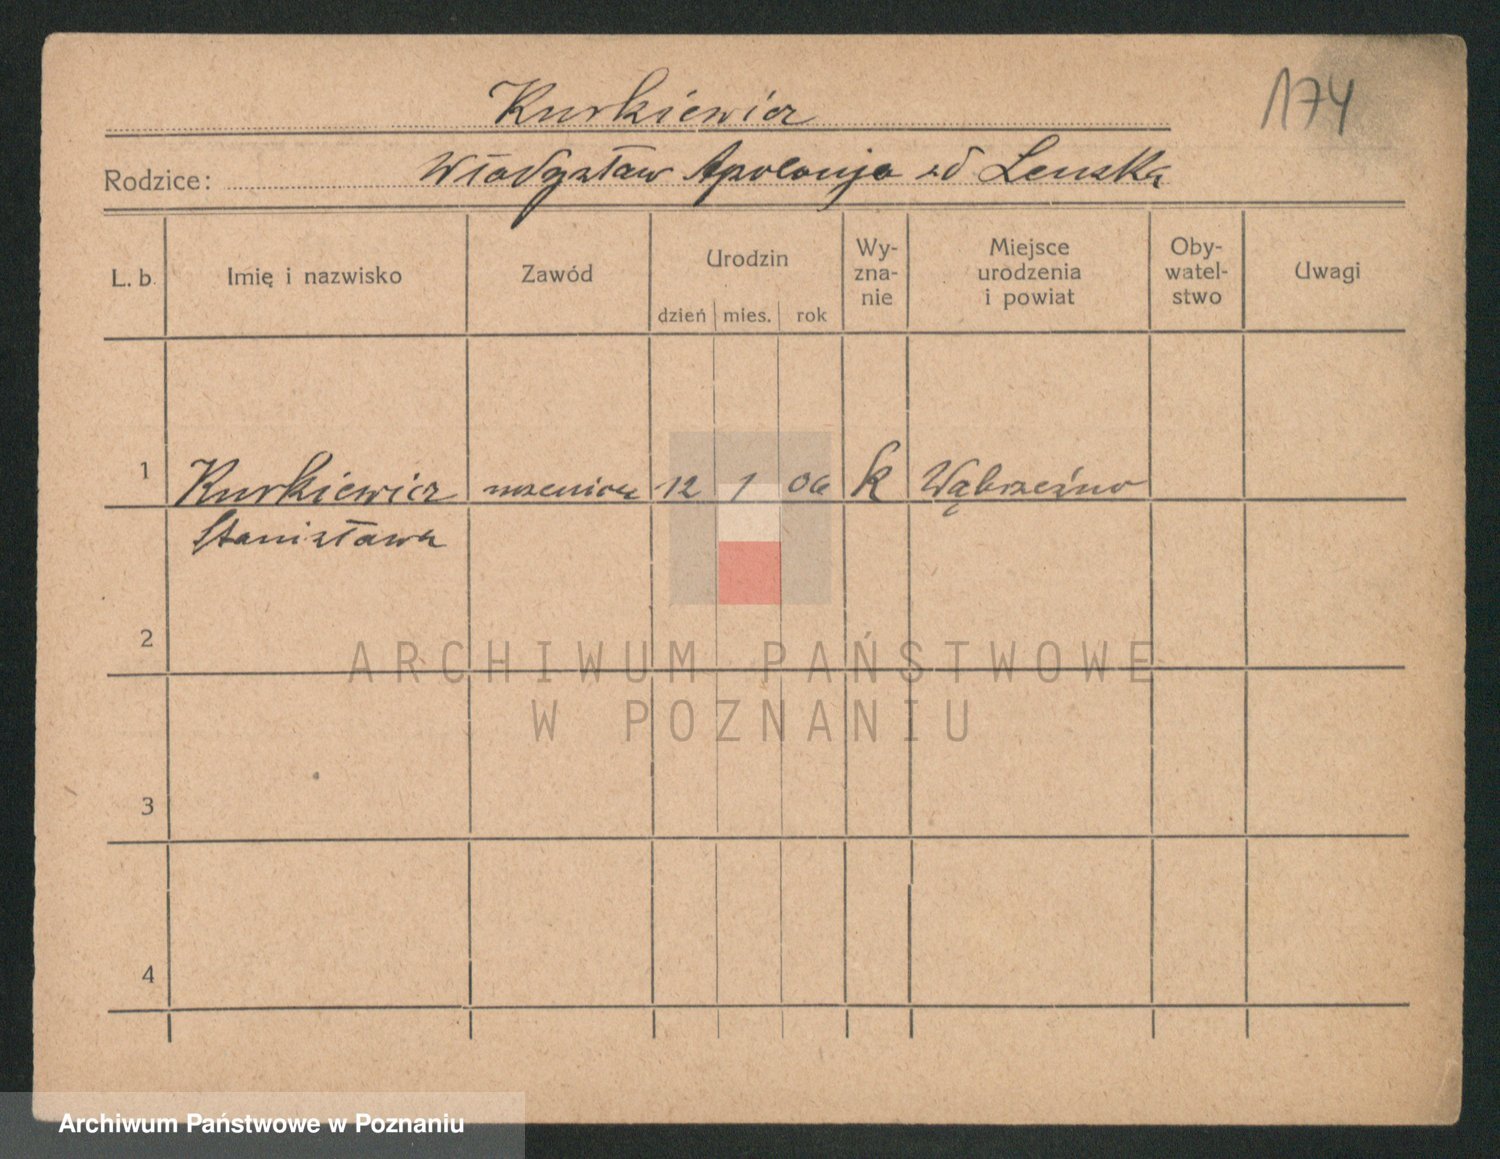 174
Kurkiewicz
Rodzice: Władysław Apolonja zd Lenska
L. b. Imię i nazwisko Zawód Urodzin Wy-zna-nie Miejsce urodzenia i powiat Oby-watel-stwo Uwagi
dzień mies. rok
1 Kurkiewicz uczenica 12 1 06 k Wąbrzeźno
Stanisława
2
ARCHIWUM PAŃSTWOWE
W POZNANIU
3
4
Archiwum Państwowe w Poznaniu